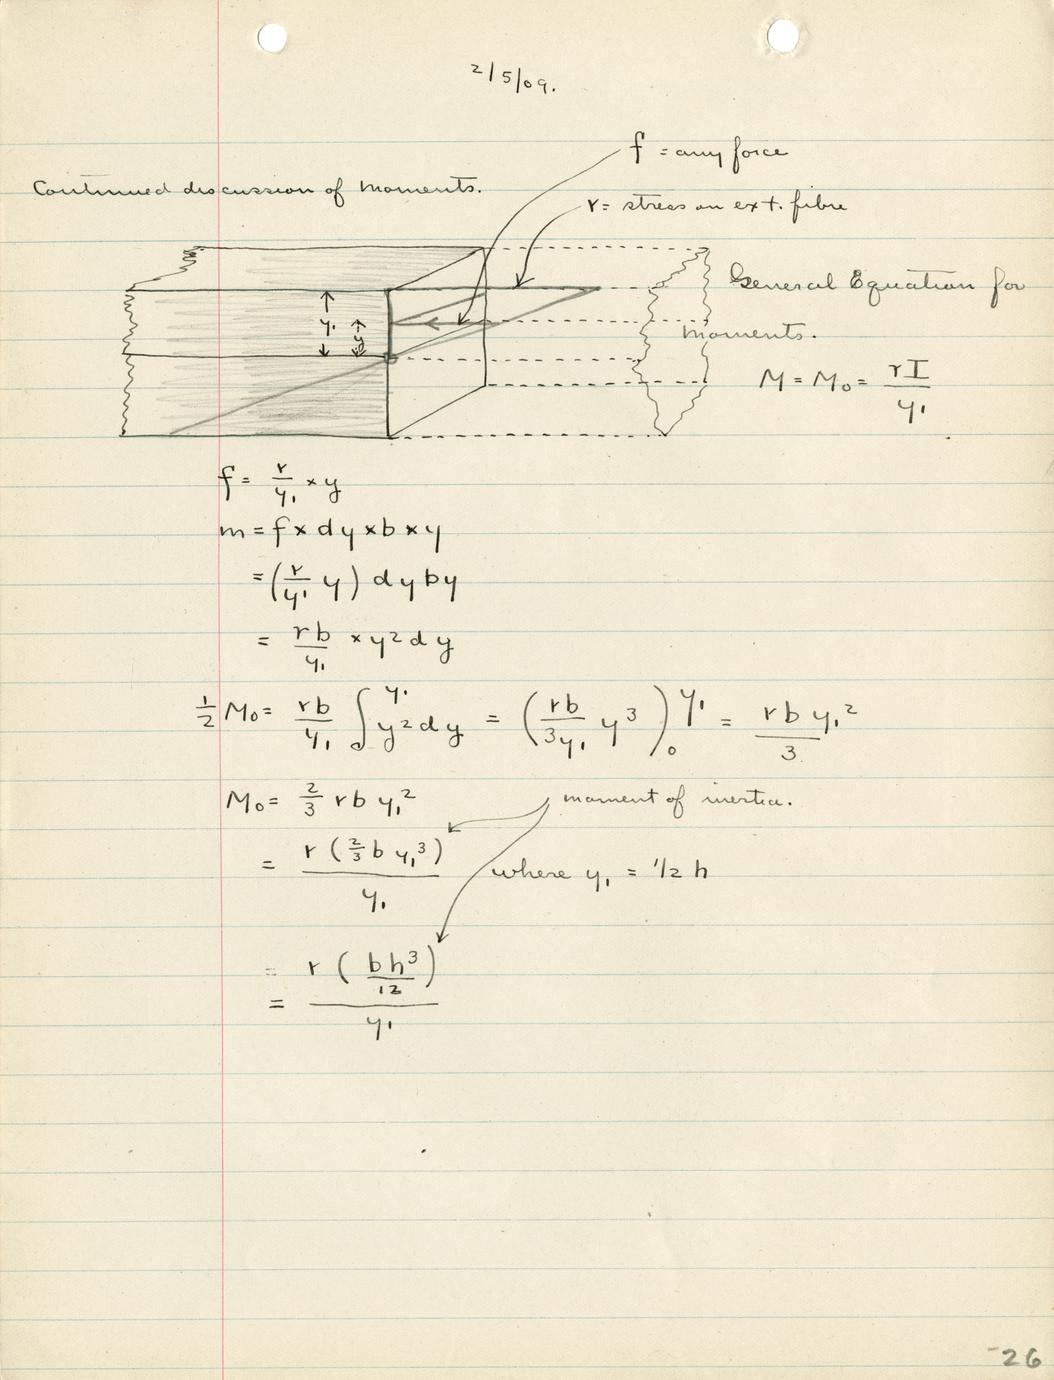 2/5/09.
f = any force
Continued discussion of Moments.
r = stress on ext. fibre
General Equation for
Moments.
y₁ y
M = M₀ = rI/y₁
f = r/y₁ × y
m = f × dy × b × y
= (r/y₁ y) dy b y
= rb/y₁ × y² dy
½ M₀ = rb/y₁ ∫₀^y₁ y² dy = (rb/3y₁ y³)₀^y₁ = rb y₁²/3
M₀ = 2/3 rb y₁²
moment of inertia.
= r (2/3 b y₁³)/y₁ where y₁ = 1/2 h
=
= r (bh³/12)/y₁
-26